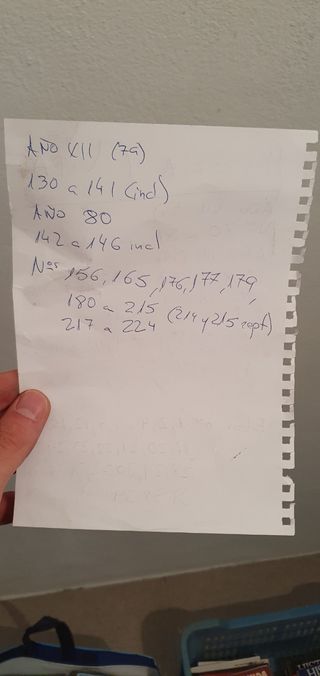 AÑO XII (79)
130 a 141 (incl)
AÑO 80
142 a 146 incl
Nos 156, 165, 176, 177, 179,
180 a 215 (214 y 215 rept)
217 a 224